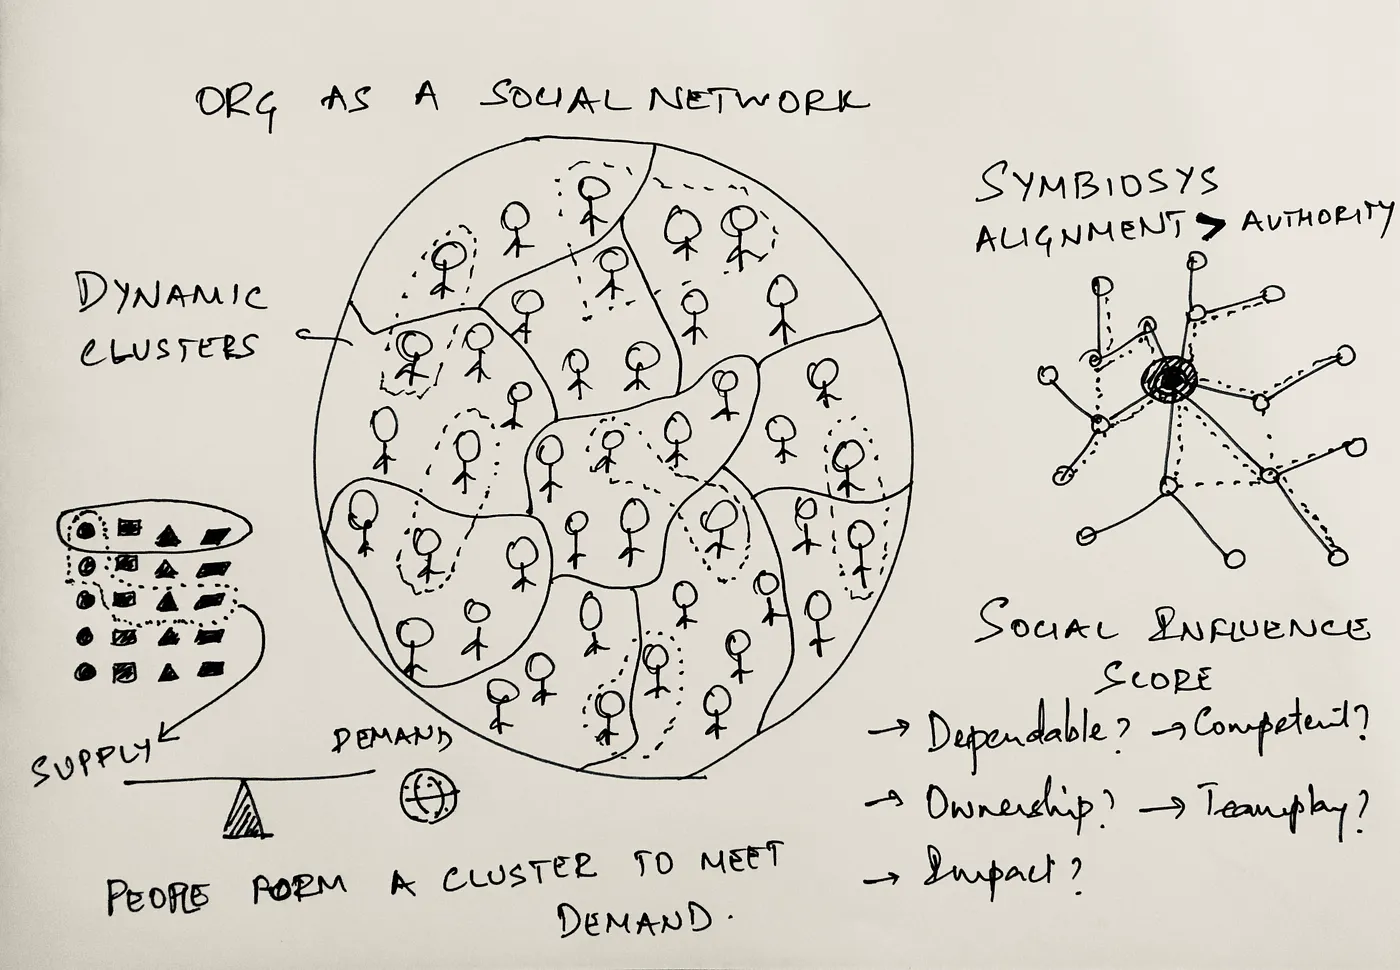 ORG AS A SOCIAL NETWORK
SYMBIOSYS
ALIGNMENT > AUTHORITY
DYNAMIC
CLUSTERS
SUPPLY
DEMAND
PEOPLE FORM A CLUSTER TO MEET
DEMAND.
SOCIAL INFLUENCE
SCORE
→ Dependable? → Competent?
→ Ownership? → Teamplay?
→ Impact?